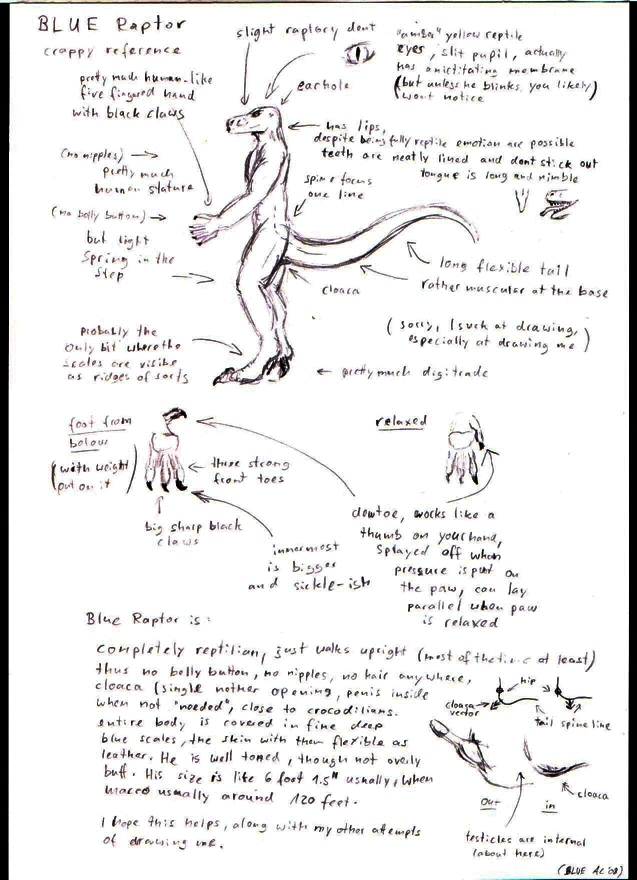 BLUE Raptor
crappy reference
slight raptory dent
earhole
"amba" yellow reptile
eyes, slit pupil, actually
has a nictitating membrane
(but unless he blinks, you likely)
wont notice
pretty much human-like
five fingered hand
with black claws
has lips,
despite being fully reptile emotion are possible
teeth are neatly lined and dont stick out
tongue is long and nimble
(no nipples)
pretty much
human stature
spine focus
one line
(no belly button)
but light
Spring in the
step
cloaca
long flexible tail
rather muscular at the base
(sorry, I suck at drawing,
especially at drawing me)
probably the
only bit where the
scales are visible
as ridges of sorts
pretty much digitrade
foot from
below
(with weight
put on it)
three strong
front toes
big sharp black
claws
innermost
is bigger
and sickle-ish
relaxed
dewtoe, works like a
thumb on your hand,
splayed off when
pressure is put on
the paw, can lay
parallel when paw
is relaxed
Blue Raptor is:
completely reptilian, just walks upright (most of the time at least)
thus no belly button, no nipples, no hair anywhere,
cloaca (single nether opening, penis inside
when not "needed", close to crocodilians.
entire body is covered in fine deep
blue scales, the skin with them flexible as
leather. He is well toned, though not overly
buff. His size is like 6 foot 1.5" usually, when
macro usually around 120 feet.
I hope this helps, along with my other attempts
of drawing me.
hip
cloaca
vector
tail spine line
out
in
cloaca
testicles are internal
(about here)
(BLUE AC'08)